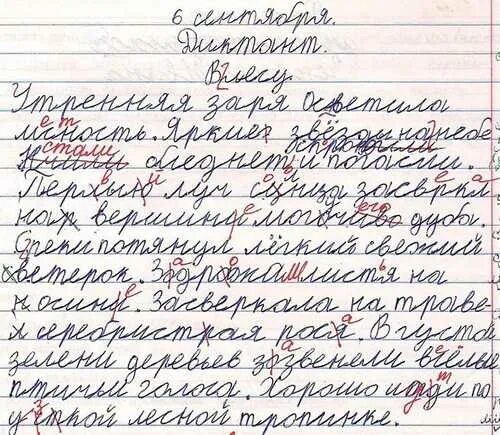 6 сентября.
Диктант.
В лесу
Утренняя заря осветила
мсность. Яркие звёзды на небе
стали бледнет и погасли.
Первый луч сонца засвркл
на вершине могочиво дуба.
С реки потянул лёгкий свежий
ветерок. Задрожали листя на
осини. Засверкала на траве
серебристая роса. В густой
зелени деревьев зазвенели вёлые
птичьи голоса. Хорошо идти по
уткой лесной тропинке.